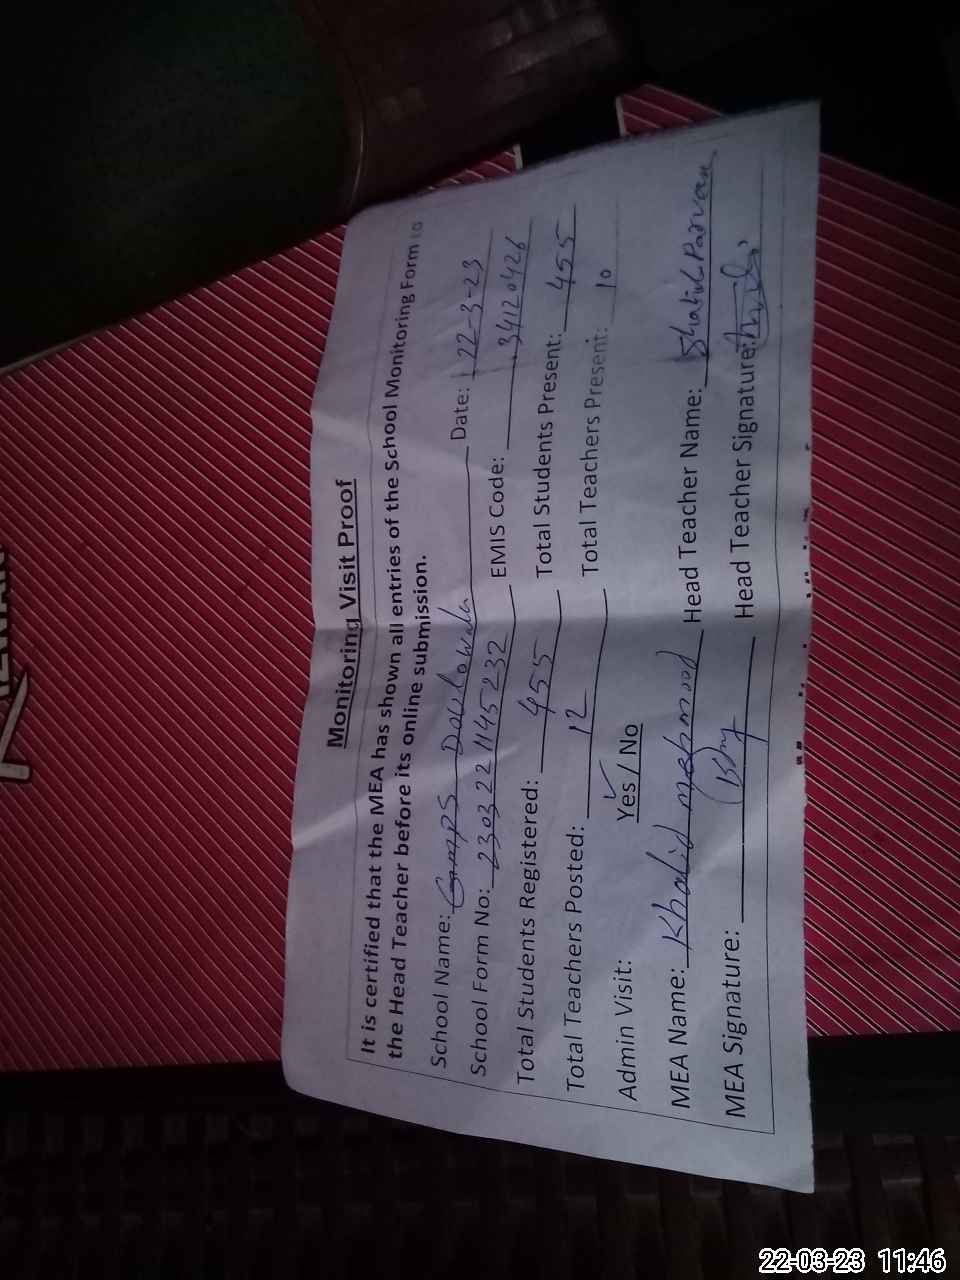 Monitoring Visit Proof
It is certified that the MEA has shown all entries of the School Monitoring Form to
the Head Teacher before its online submission.
School Name: GMPS Date: 22-3-23
School Form No: 2303221145232 EMIS Code: 34120426
Total Students Registered: 455 Total Students Present: 455
Total Teachers Posted: 12 Total Teachers Present: 10
Admin Visit: Yes / No
MEA Name: Khalid mehmood Head Teacher Name:
MEA Signature: Head Teacher Signature:
22-03-23 11:46